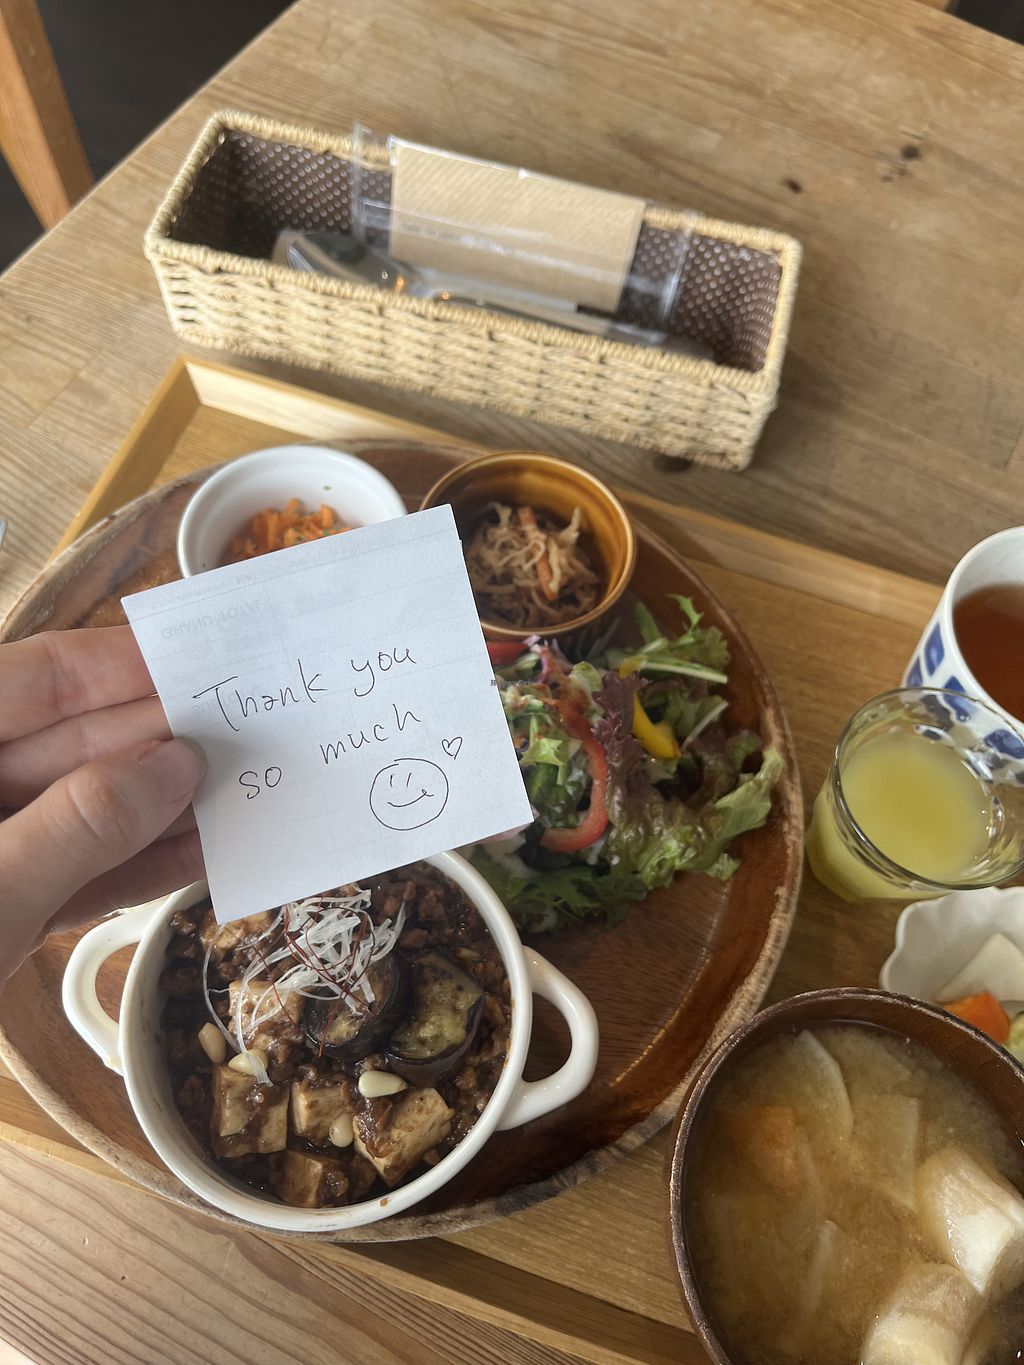 GRAND TOTAL
Thank you
so much